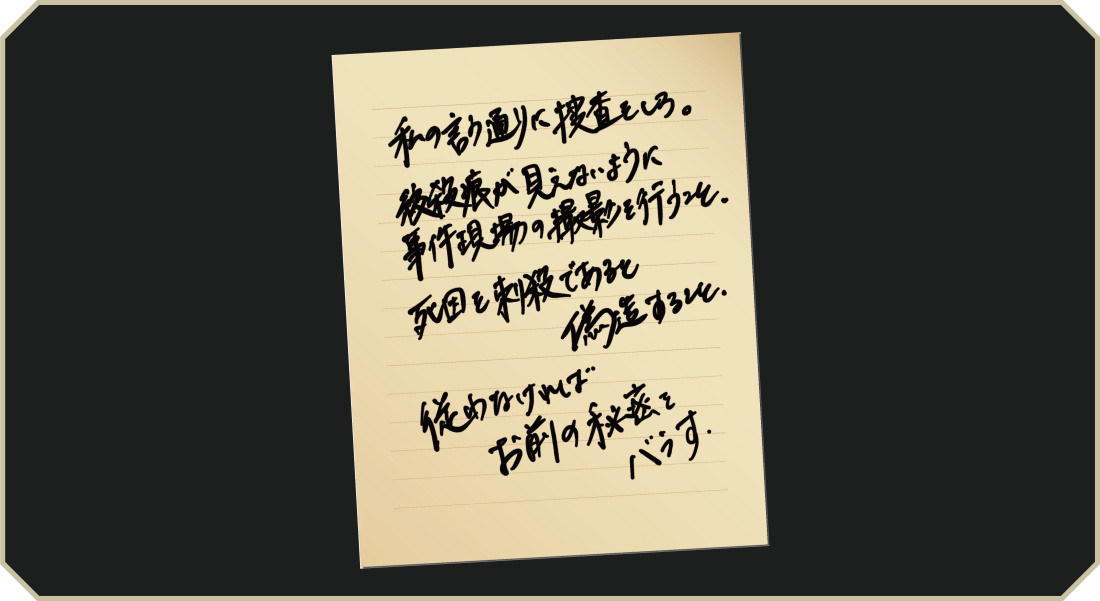 私の言う通りに捜査をしろ。
絞殺痕が見えないように
事件現場の撮影を行うこと.
死因を刺殺であると
偽造すること.
従わなければ
お前の秘密を
バラす.